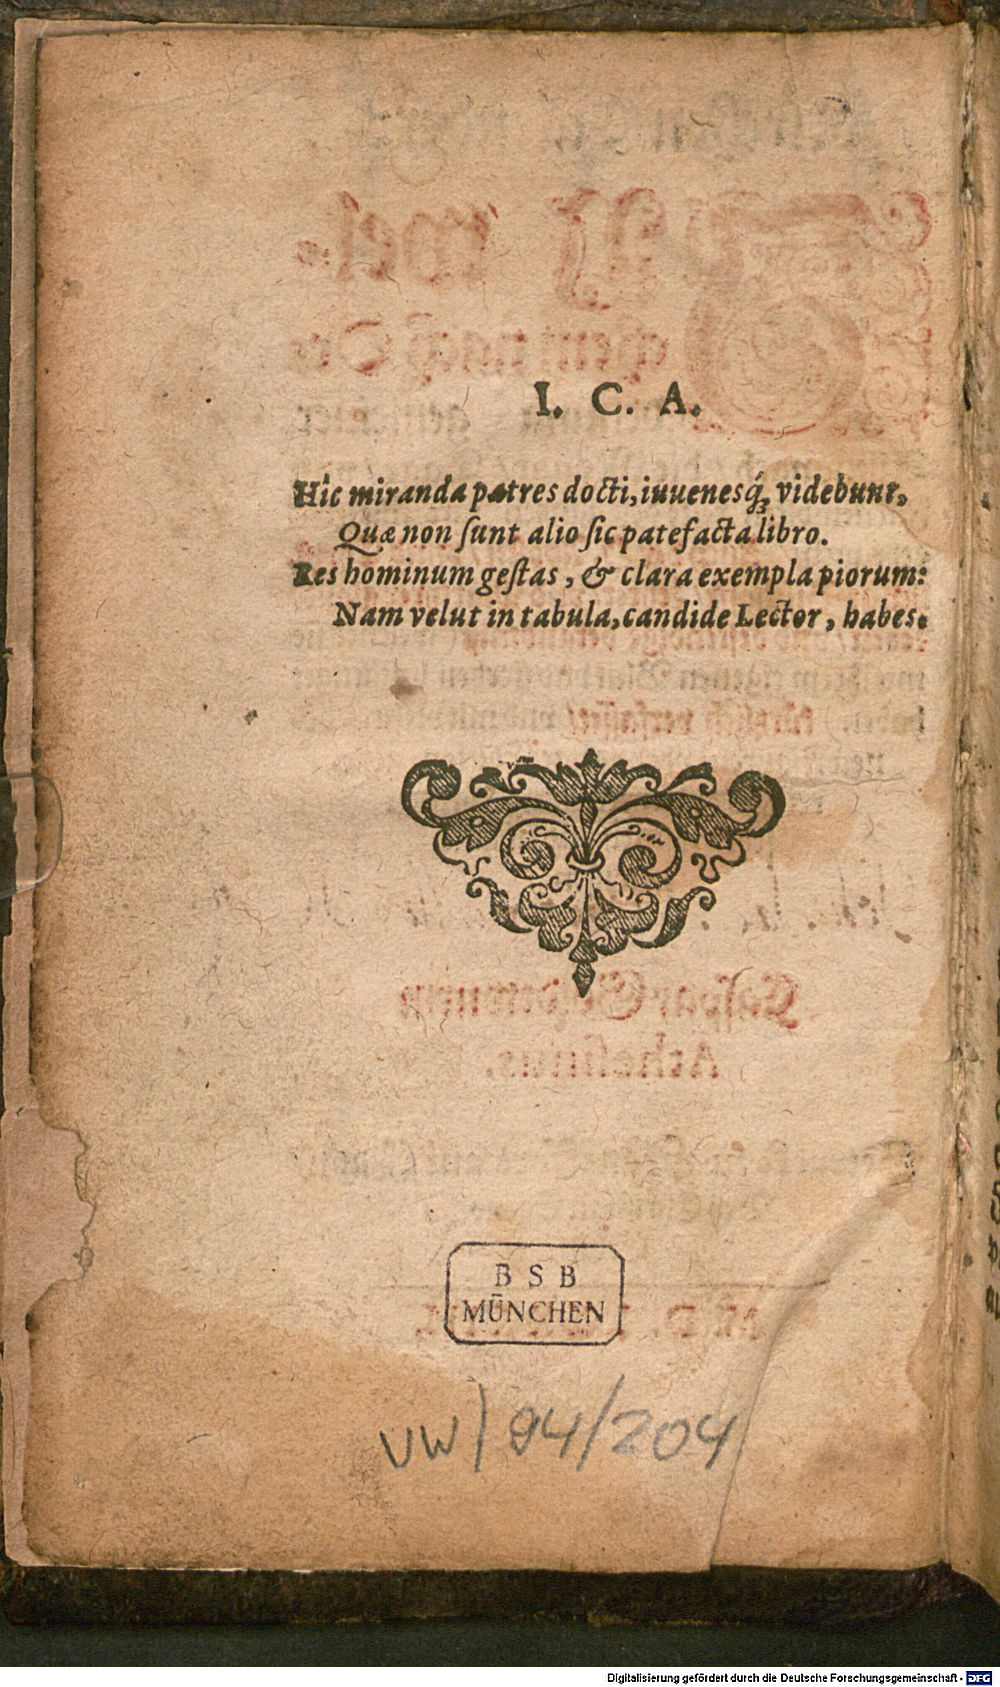 I. C. A.
Hic miranda patres docti, iuuenesq́; videbunt,
Quæ non ſunt alio ſic patefacta libro.
Res hominum geſtas, & clara exempla piorum:
Nam velut in tabula, candide Lector, habes.
BSB
MÜNCHEN
VW/94/204
Digitalisierung gefördert durch die Deutsche Forschungsgemeinschaft - DFG